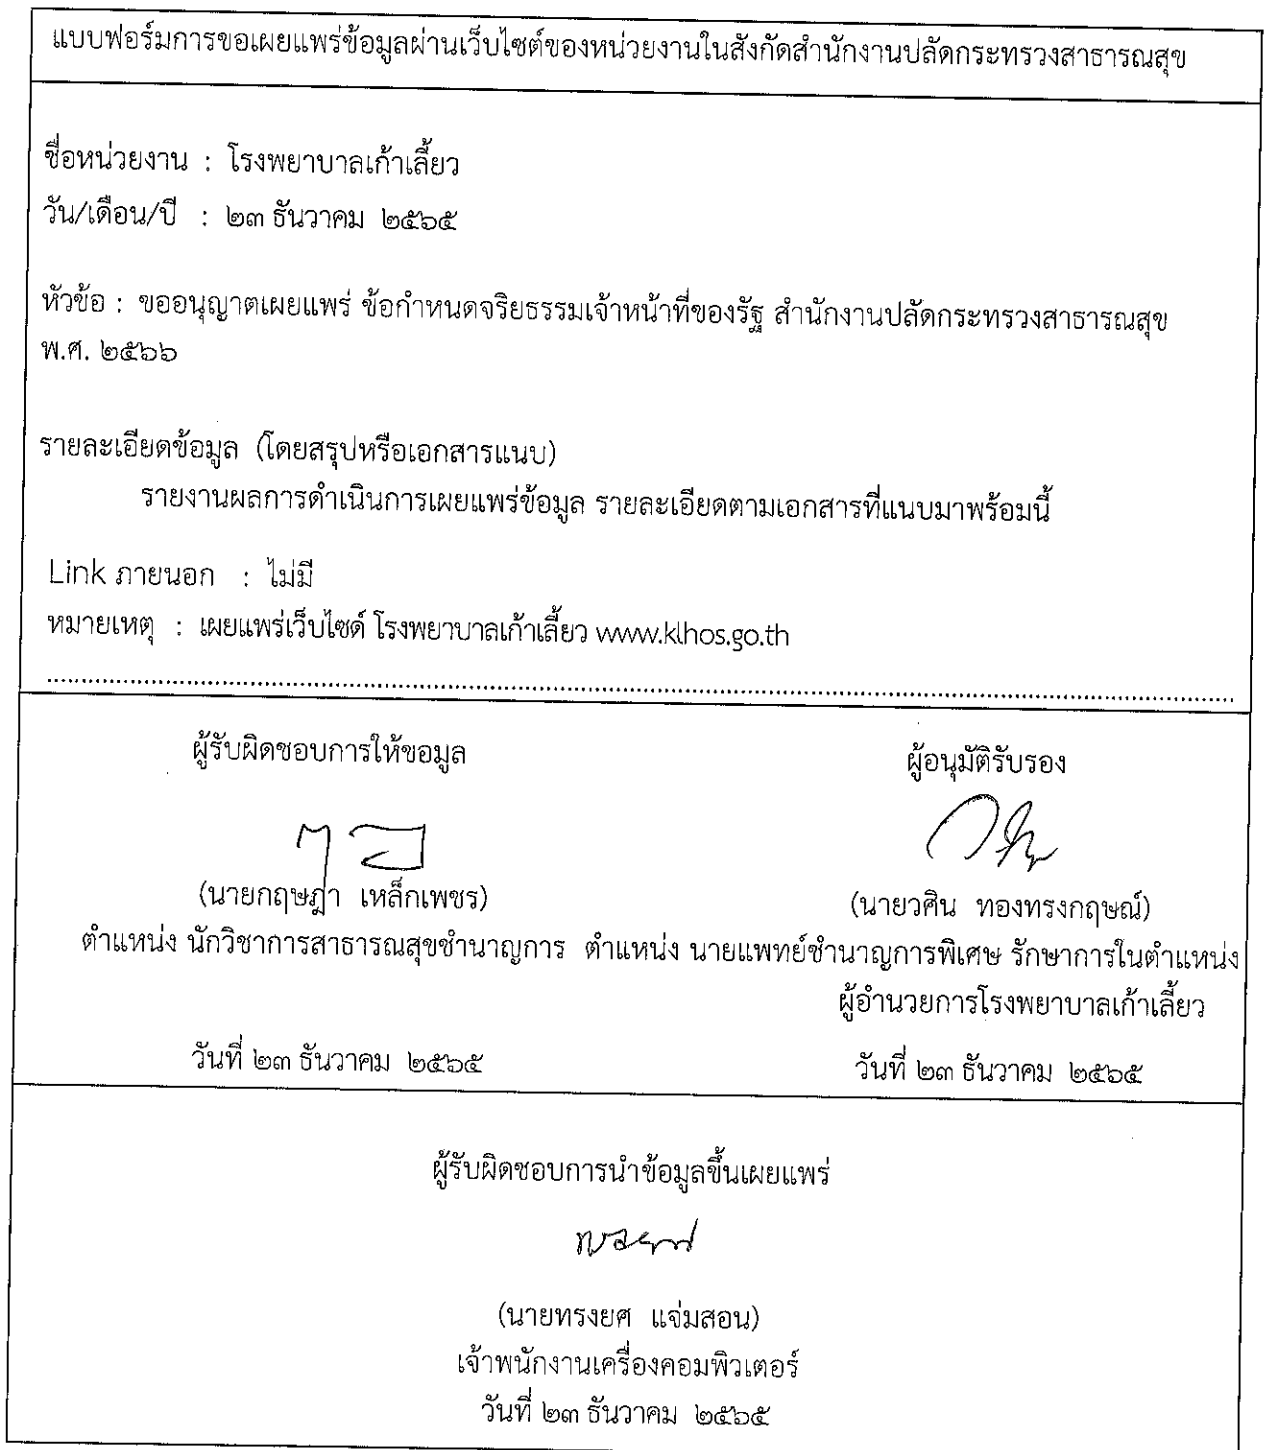 แบบฟอร์มการขอเผยแพร่ข้อมูลผ่านเว็บไซต์ของหน่วยงานในสังกัดสำนักงานปลัดกระทรวงสาธารณสุข
ชื่อหน่วยงาน : โรงพยาบาลเก้าเลี้ยว
วัน/เดือน/ปี : ๒๓ ธันวาคม ๒๕๖๕
หัวข้อ : ขออนุญาตเผยแพร่ ข้อกำหนดจริยธรรมเจ้าหน้าที่ของรัฐ สำนักงานปลัดกระทรวงสาธารณสุข
พ.ศ. ๒๕๖๖
รายละเอียดข้อมูล (โดยสรุปหรือเอกสารแนบ)
รายงานผลการดำเนินการเผยแพร่ข้อมูล รายละเอียดตามเอกสารที่แนบมาพร้อมนี้
Link ภายนอก : ไม่มี
หมายเหตุ : เผยแพร่เว็บไซด์ โรงพยาบาลเก้าเลี้ยว www.klhos.go.th
ผู้รับผิดชอบการให้ขอมูล ผู้อนุมัติรับรอง
(นายกฤษฎา เหล็กเพชร) (นายวศิน ทองทรงกฤษณ์)
ตำแหน่ง นักวิชาการสาธารณสุขชำนาญการ ตำแหน่ง นายแพทย์ชำนาญการพิเศษ รักษาการในตำแหน่ง
ผู้อำนวยการโรงพยาบาลเก้าเลี้ยว
วันที่ ๒๓ ธันวาคม ๒๕๖๕ วันที่ ๒๓ ธันวาคม ๒๕๖๕
ผู้รับผิดชอบการนำข้อมูลขึ้นเผยแพร่
(นายทรงยศ แจ่มสอน)
เจ้าพนักงานเครื่องคอมพิวเตอร์
วันที่ ๒๓ ธันวาคม ๒๕๖๕